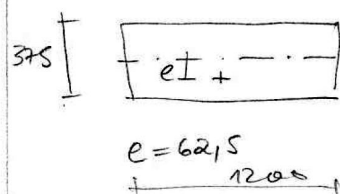 375
e
e = 62,5
1200